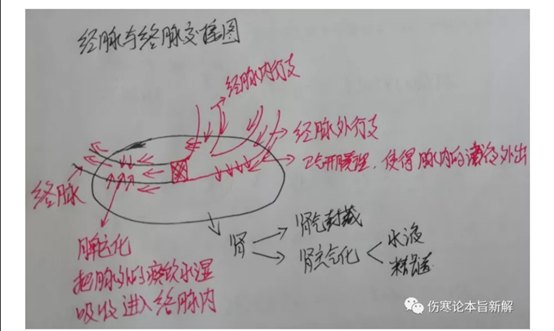 经脉与络脉交接图
经脉内行支
经脉外行支
经脉
飞鸟开腠理，使得脉内的津液外出
脾主运化
把脉外的痰饮水湿
吸收进入络脉内
肾
肾气封藏
肾主气化
水液
精
伤寒论本旨新解